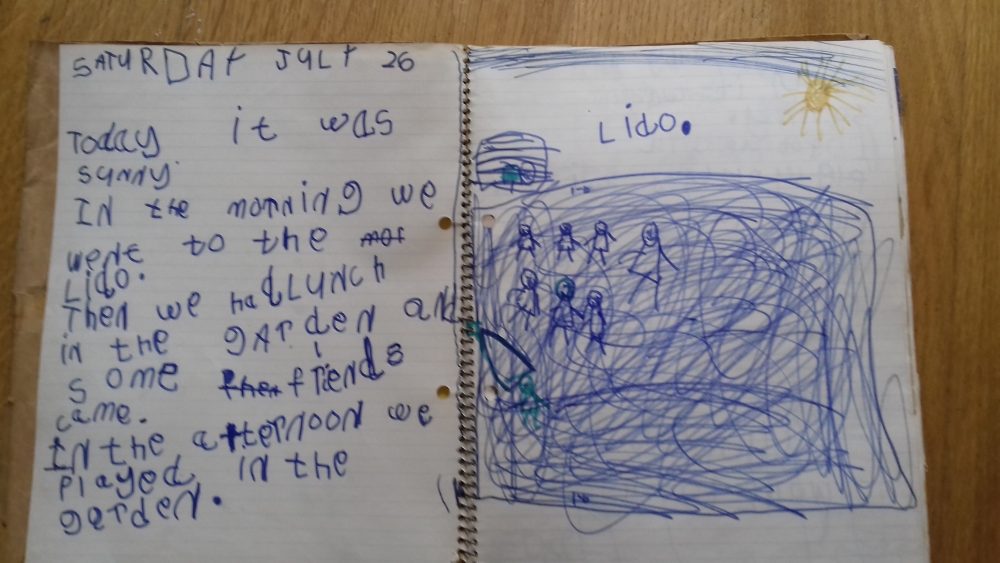 SATURDAY JULY 26
Today it was
sunny.
IN the morning we
went to the
Lido.
Then we had LUNCH
in the garden and
some friends
came.
In the afternoon we
played in the
garden.
Lido.